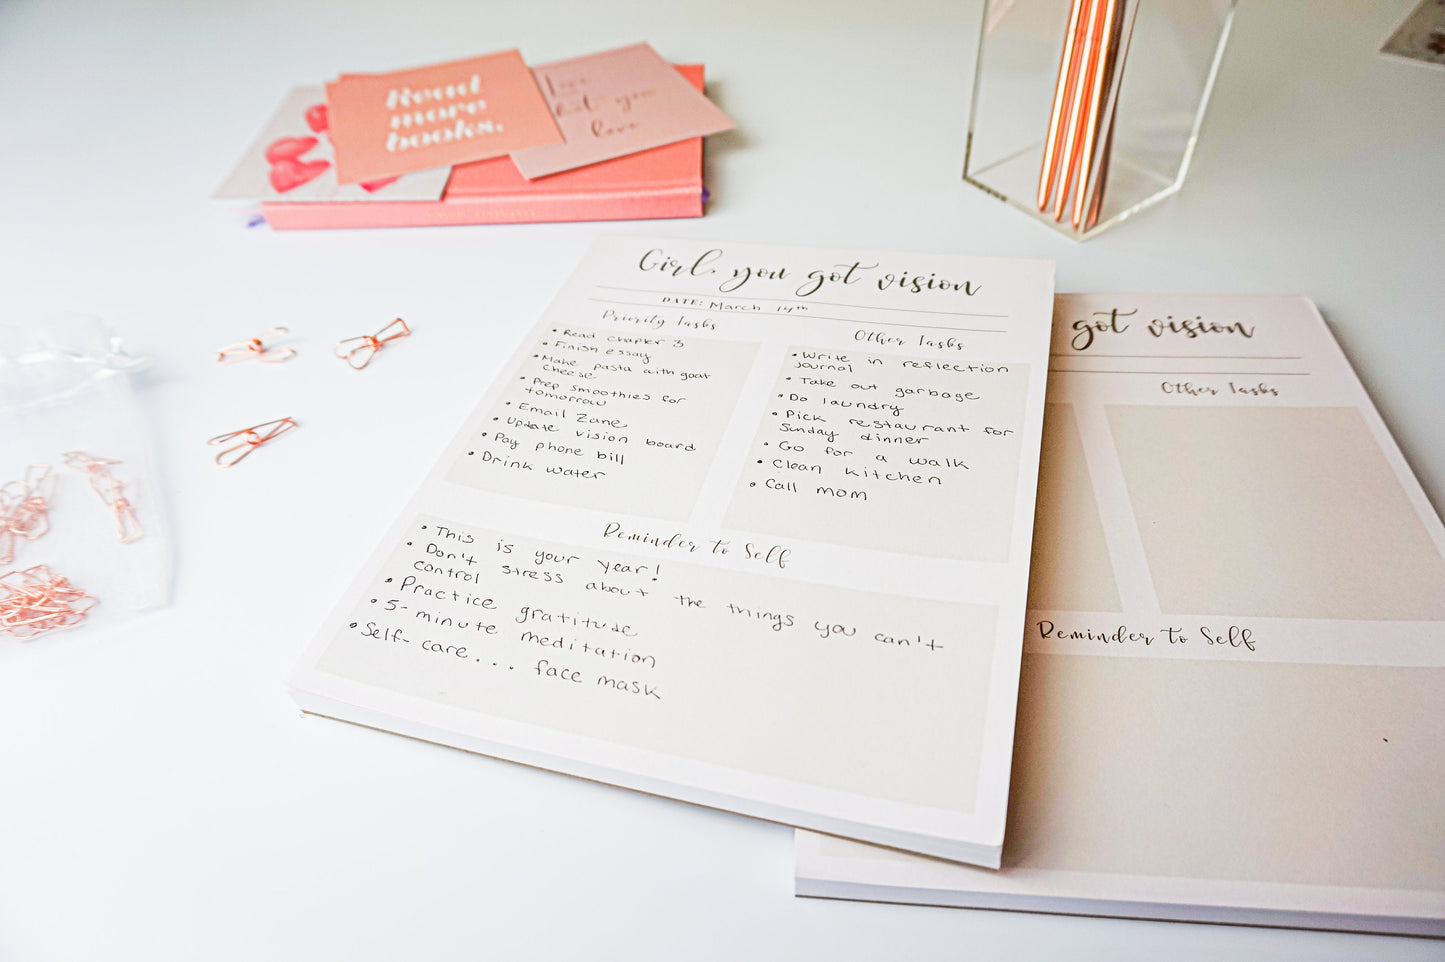 Read
more
books.
love
Girl, you got vision
DATE: March 14th
Priority Tasks
• Read chapter 3
• Finish essay
• Make pasta with goat
cheese
• Prep smoothies for
tomorrow
• Email Zane
• Update vision board
• Pay phone bill
• Drink water
Other Tasks
• Write in reflection
journal
• Take out garbage
• Do laundry
• Pick restaurant for
Sunday dinner
• Go for a walk
• Clean kitchen
• Call mom
Reminder to Self
• This is your year!
• Don't stress about the things you can't
control
• Practice gratitude
• 5-minute meditation
• Self-care... face mask
got vision
Other Tasks
Reminder to Self